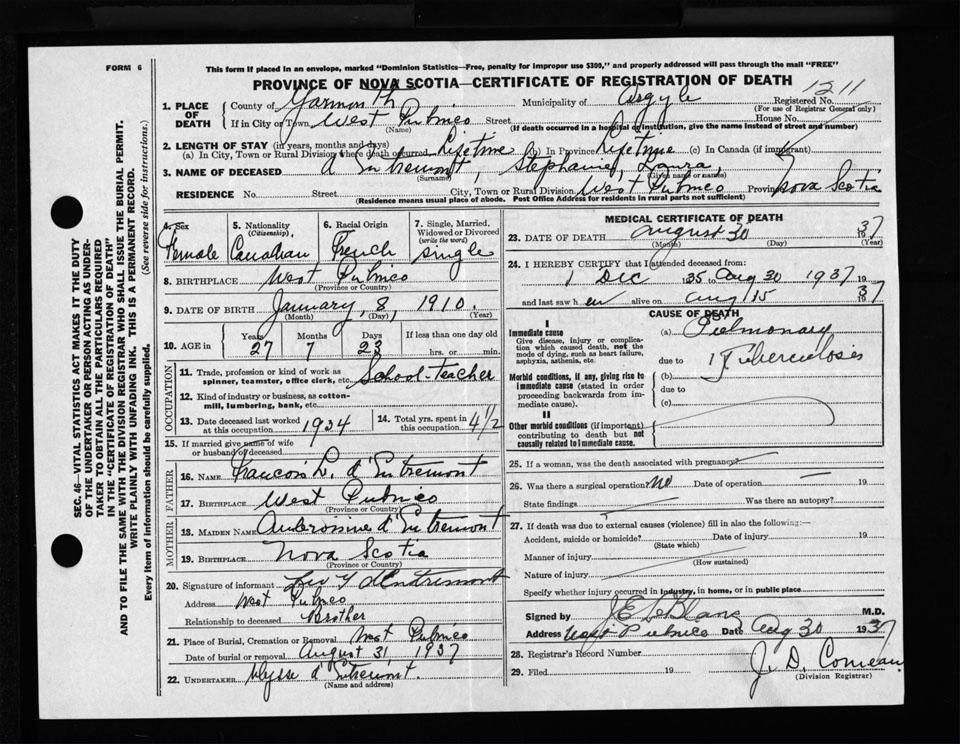 FORM 6
This form if placed in an envelope, marked "Dominion Statistics—Free, penalty for improper use $300," and properly addressed will pass through the mail "FREE"
PROVINCE OF NOVA SCOTIA—CERTIFICATE OF REGISTRATION OF DEATH
1. PLACE OF DEATH County of Yarmouth Municipality of Argyle Registered No. 1211
(For use of Registrar General only)
If in City or Town West Pubnico Street House No.
(Name) (If death occurred in a hospital or institution, give the name instead of street and number)
2. LENGTH OF STAY (in years, months and days)
(a) In City, Town or Rural Division where death occurred Lifetime (b) In Province Lifetime (c) In Canada (if immigrant)
3. NAME OF DECEASED d'Entremont, Stephanie, Laura,
(Surname) (Given name or names)
RESIDENCE No. Street City, Town or Rural Division West Pubnico Province Nova Scotia
(Residence means usual place of abode. Post Office Address for residents in rural parts not sufficient)
4. Sex Female
5. Nationality (Citizenship) Canadian
6. Racial Origin French
7. Single, Married, Widowed or Divorced (write the word) single
8. BIRTHPLACE West Pubnico
(Province or Country)
9. DATE OF BIRTH January, 8, 1910.
(Month) (Day) (Year)
10. AGE in Years 27 Months 7 Days 23 If less than one day old hrs. or min.
OCCUPATION
11. Trade, profession or kind of work as spinner, teamster, office clerk, etc. School-teacher
12. Kind of industry or business, as cotton-mill, lumbering, bank, etc.
13. Date deceased last worked at this occupation 1934
14. Total yrs. spent in this occupation 4 1/2
15. If married give name of wife or husband of deceased
FATHER
16. NAME Francois L. d'Entremont
17. BIRTHPLACE West Pubnico
(Province or Country)
MOTHER
18. MAIDEN NAME Ambrosine d'Entremont
19. BIRTHPLACE Nova Scotia
(Province or Country)
20. Signature of informant d'Entremont
Address West Pubnico
Relationship to deceased Brother
21. Place of Burial, Cremation or Removal West Pubnico
Date of burial or removal August 31, 1937
22. UNDERTAKER Ulysse d'Entremont.
(Name and address)
MEDICAL CERTIFICATE OF DEATH
23. DATE OF DEATH August 30 1937
(Month) (Day) (Year)
24. I HEREBY CERTIFY that I attended deceased from:
1 Dec 1935 Aug 30 1937 19
and last saw h er alive on Aug 15 1937
CAUSE OF DEATH
I
Immediate cause
Give disease, injury or complication which caused death, not the mode of dying, such as heart failure, asphyxia, asthenia, etc.
(a) Pulmonary
due to Tuberculosis
Morbid conditions, if any, giving rise to immediate cause (stated in order proceeding backwards from immediate cause).
(b)
due to
(c)
II
Other morbid conditions (if important) contributing to death but not causally related to immediate cause.
25. If a woman, was the death associated with pregnancy?
26. Was there a surgical operation? No Date of operation 19
State findings Was there an autopsy?
27. If death was due to external causes (violence) fill in also the following:—
Accident, suicide or homicide? Date of injury 19
(State which)
Manner of injury
(How sustained)
Nature of injury
Specify whether injury occurred in industry, in home, or in public place
Signed by J. E. LeBlanc M.D.
Address West Pubnico Date Aug 30 1937
28. Registrar's Record Number
29. Filed 19 J. D. Comeau
(Division Registrar)
SEC. 46—VITAL STATISTICS ACT MAKES IT THE DUTY
OF THE UNDERTAKER OR PERSON ACTING AS UNDER-
TAKER TO OBTAIN ALL THE PARTICULARS REQUIRED
IN THE "CERTIFICATE OF REGISTRATION OF DEATH"
AND TO FILE THE SAME WITH THE DIVISION REGISTRAR WHO SHALL ISSUE THE BURIAL PERMIT.
WRITE PLAINLY WITH UNFADING INK. THIS IS A PERMANENT RECORD.
Every item of information should be carefully supplied. (See reverse side for instructions.)